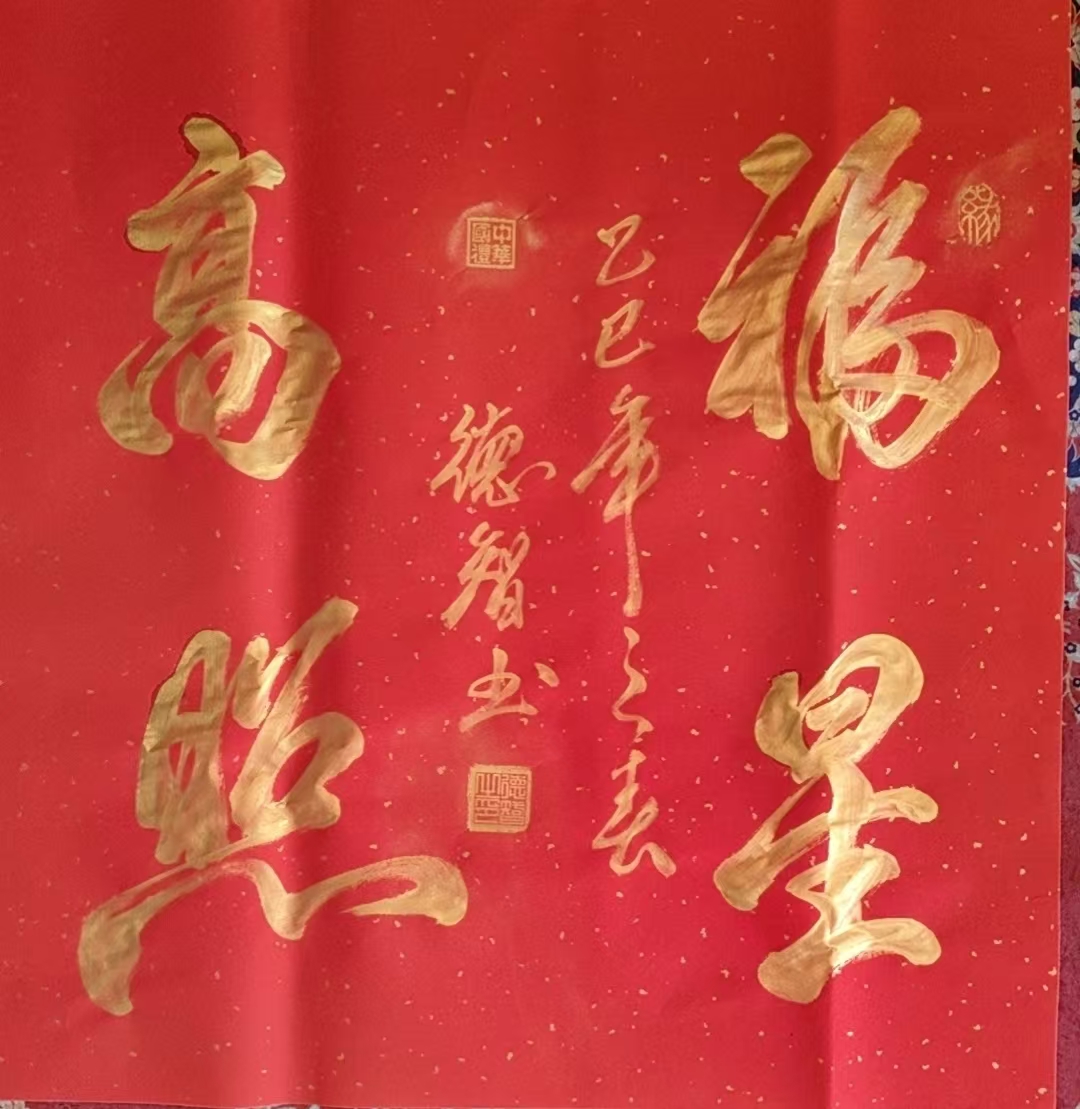 福星
高照
乙巳年之春
德智书
缘
中華
國禮
德智
之印